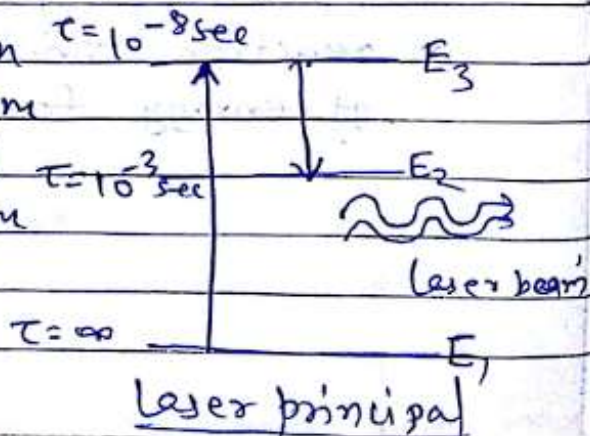 τ = 10⁻⁸ sec
E₃
τ = 10⁻³ sec
E₂
laser beam
τ = ∞
E₁
Laser principal